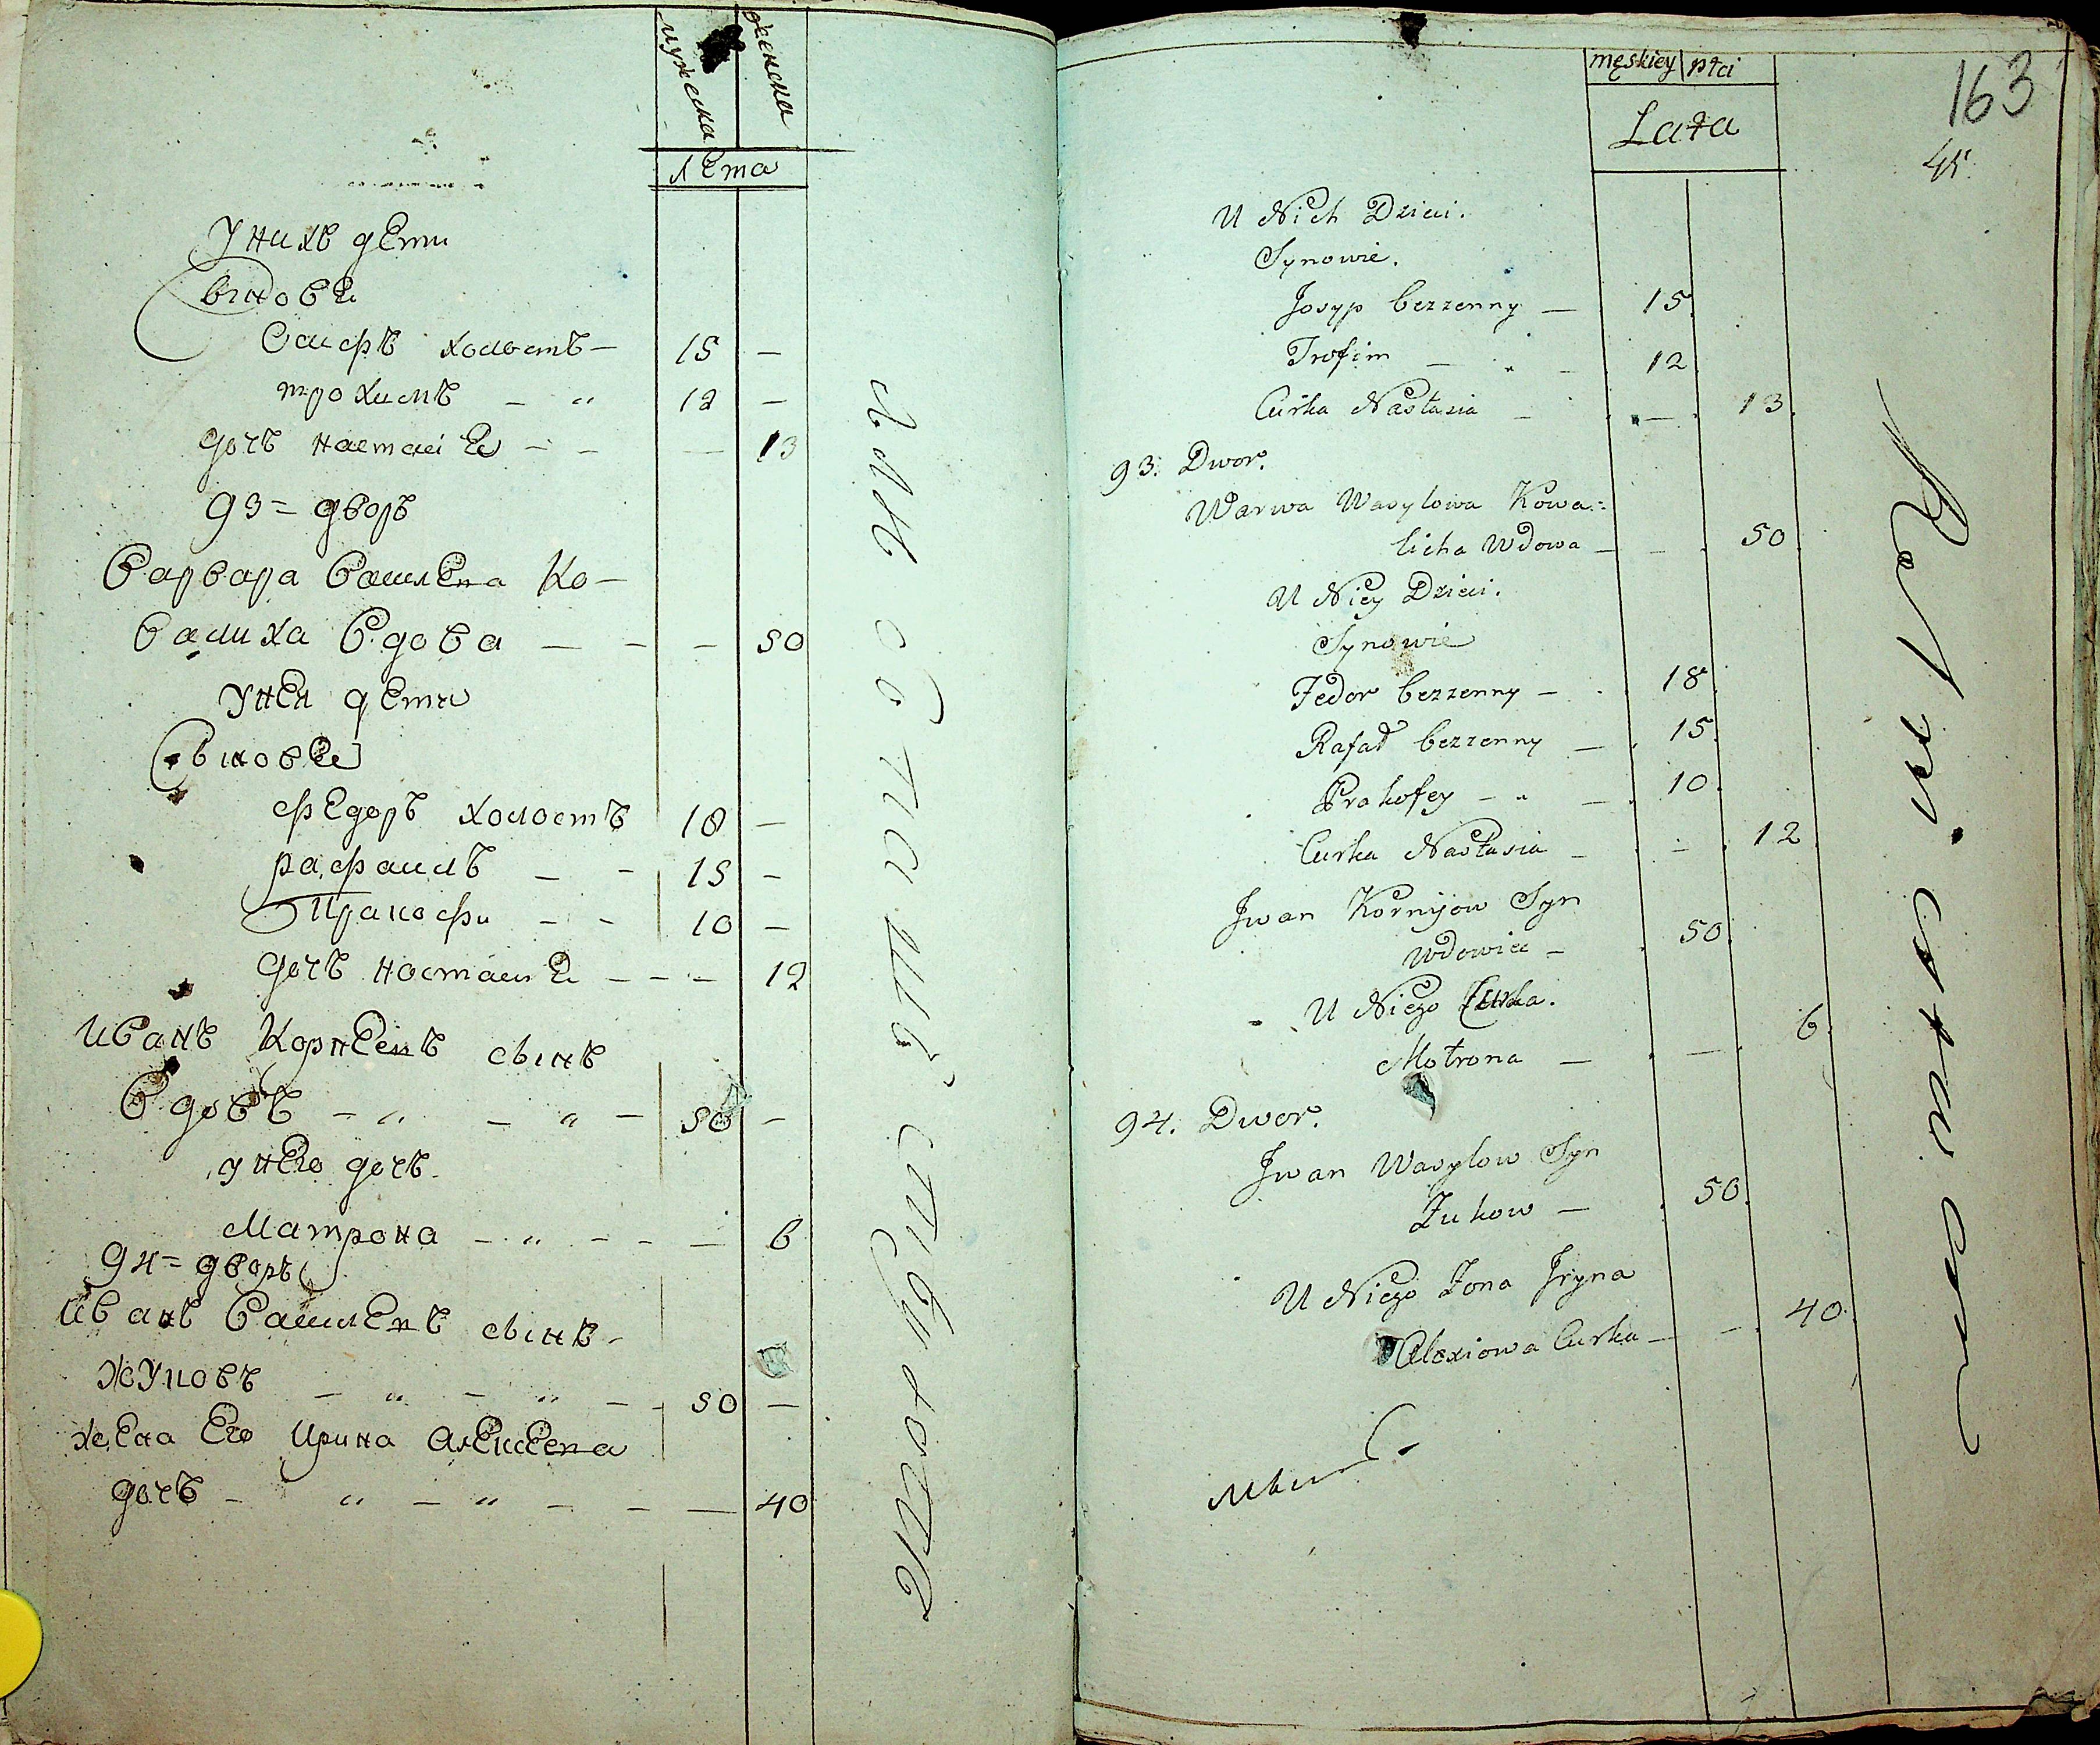 мужеска женска
лета
У нихъ дети
Сыновей
Осифъ холостъ — 15 —
трохимъ — " 12 —
дочь настасiе — — — 13
93 = дворъ
Варвара Василева Ко-
валиха Вдова — — — 50
У ней дети
Сыновей
федоръ холостъ 18 —
рафаилъ — — 15 —
Пракофи — — 10 —
дочь настасие — — — 12
Иванъ Корнеевъ сынъ
Вдовъ — " — " — 50 —
у него дочь
Матрона — " — — — 6
94 = дворъ
Иванъ Василевъ сынъ
Жуковъ — " — " — — 50 —
жена Его Ирина Алексеева
дочь — " — " — — — 40
męskiey płci
163
Lata
45.
U Nich Dzieci.
Synowie.
Josyp bezzenny — 15.
Trofim — " — 12
Curka Nastazia — — 13.
93. Dwor.
Warwa Wasylowa Kowa=
licha Wdowa — — 50
U Niey Dzieci.
Synowie
Fedor bezzenny — 18
Rafał bezzenny — 15.
Prakofey — " — 10
Curka Nastasia — — 12
Jwan Kornijow Syn
Wdowiec — 50
U Niego Curka.
Motrona — — 6.
94. Dwor.
Jwan Wasylow Syn
Zukow — 50.
U Niego Zona Jryna
Alexiowa Curka — — 40.